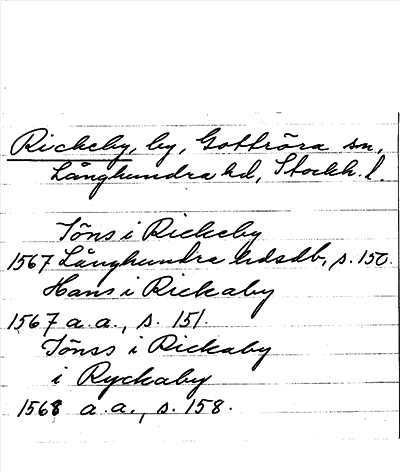 Rickeby, by, Gottröra sn,
Långhundra hd, Stockh. l.
Töns i Rickeby
1567 Långhundra hdsdb, s. 150.
Hans i Rickaby
1567 a. a., s. 151.
Tönss i Rickaby
i Ryckaby
1568 a. a., s. 158.